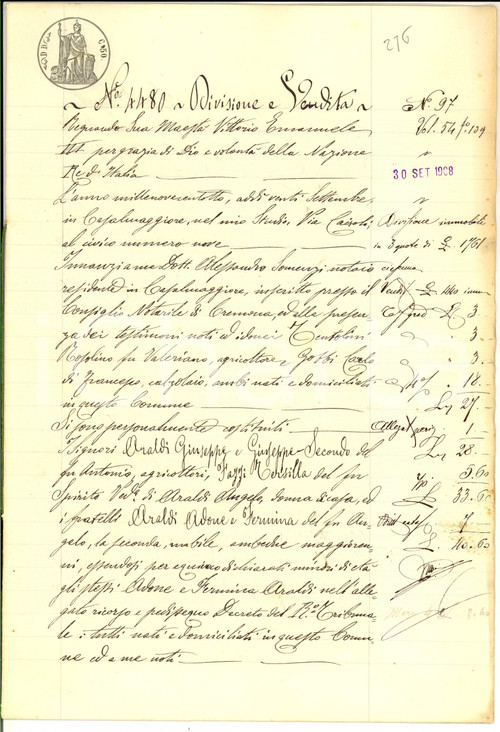 276
~ N.° 4480 ~ Divisione e Vendita ~
N.° 97
Regnando Sua Maestà Vittorio Emanuele
Vol. 54 f.° 139
III per grazia di Dio e volontà della Nazione
Re d'Italia
30 SET 1908
L'anno millenovecentotto, addì venti Settembre,
in Casalmaggiore, nel mio Studio, Via Cairoli
Divisione immobile
al civico numero nove
in 3 quote di £ 1751
Innanzi a me Dott. Alessandro Somenzi notaio
ciascuna
residente in Casalmaggiore, inscritto presso il
Vendita £ 1140
Consiglio Notarile di Cremona, ed alla presen
£ 3
za dei testimoni noti ed idonei
" 3
Rosolino fu Valeriano, agricoltore e Gobbi Carlo
" 3
di Francesco, calzolaio, ambi nati e domiciliati
" 18
in questo Comune
27
Si sono personalmente costituiti
1
I Signori Araldi Giuseppe e Giuseppe-Secondo del
28
fu Antonio, agricoltori, Fazzi Morsilla del fu
5.60
Spirito Ved.ª di Araldi Angelo, donna di casa, ed
£ 33.60
i fratelli Araldi Adone e Fermina del fu An-
7
gelo, la seconda, nubile, ambedue maggioren-
£ 40.60
ni, essendosi per equivoco dichiarati minori di età
gli stessi Adone e Fermina Araldi nell'alle
gato ricorso e pedissequo Decreto del R.° Tribuna-
le: tutti nati e domiciliati in questo Comu-
ne ed a me noti